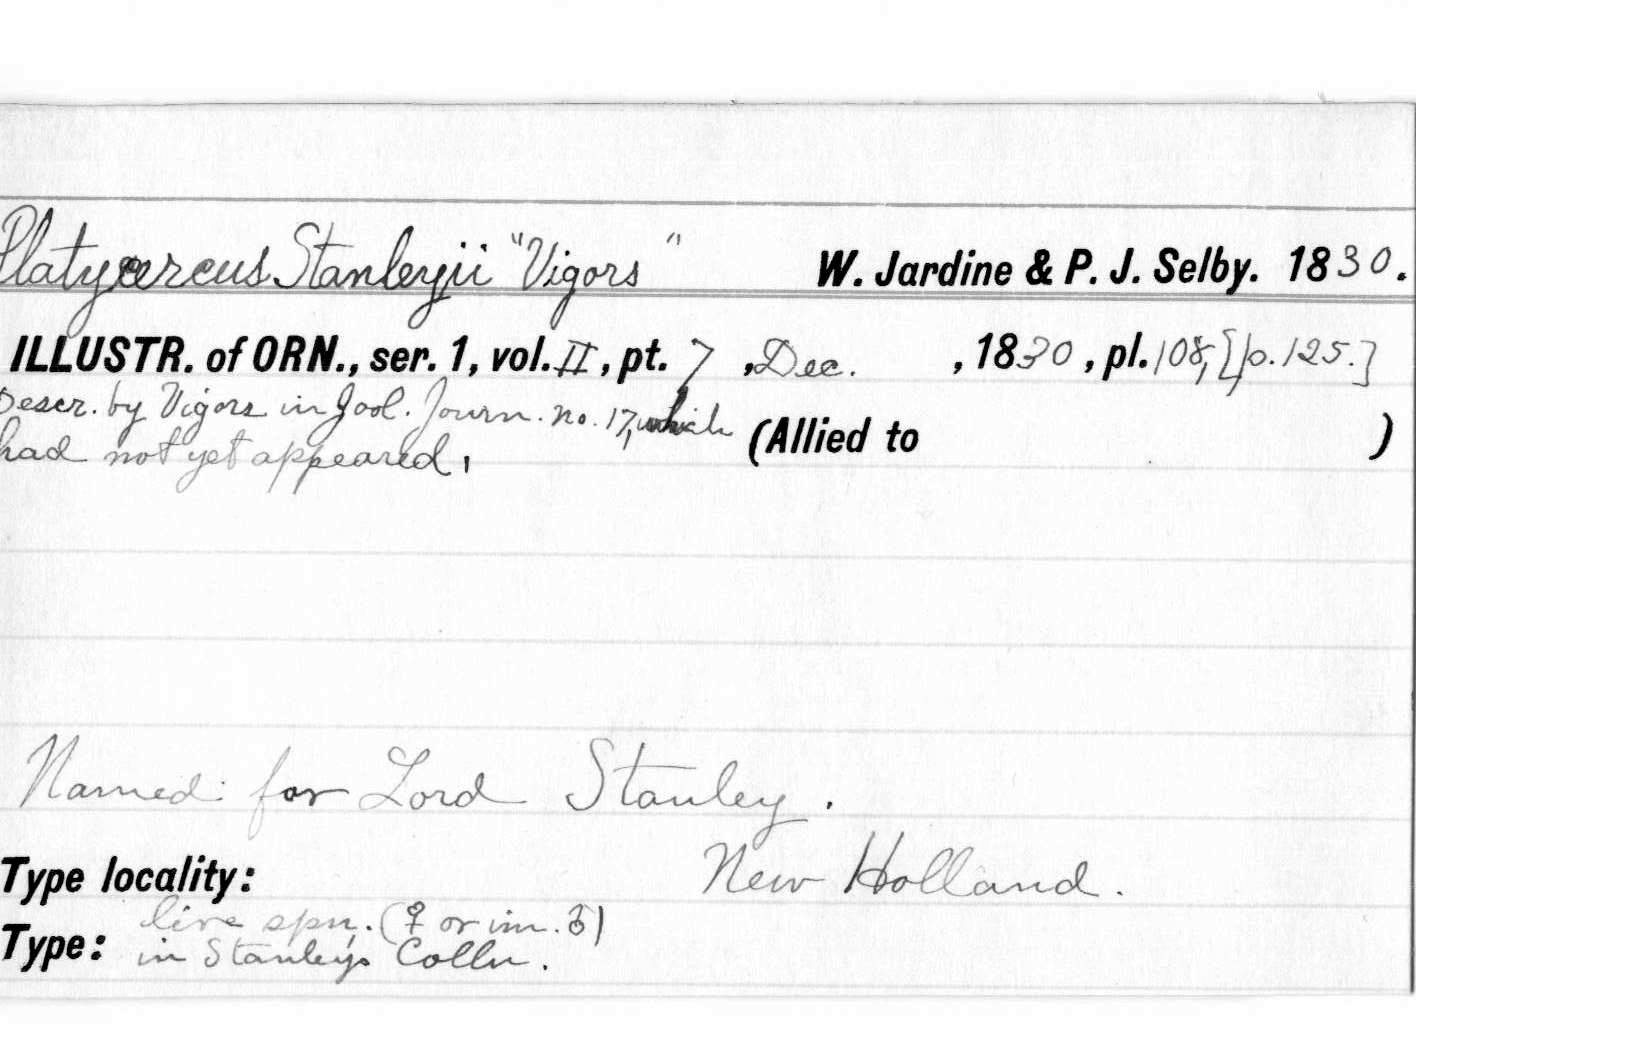 Platycercus Stanleyii "Vigors" W. Jardine & P. J. Selby. 1830.
ILLUSTR. of ORN., ser. 1, vol. II, pt. 7, Dec. , 1830, pl. 108, [p. 125.]
Descr. by Vigors in Zool. Journ. no. 17, which
had not yet appeared, (Allied to )
Named for Lord Stanley.
Type locality: New Holland.
Type: live spn. (♀ or im. ♂)
in Stanley's Colln.